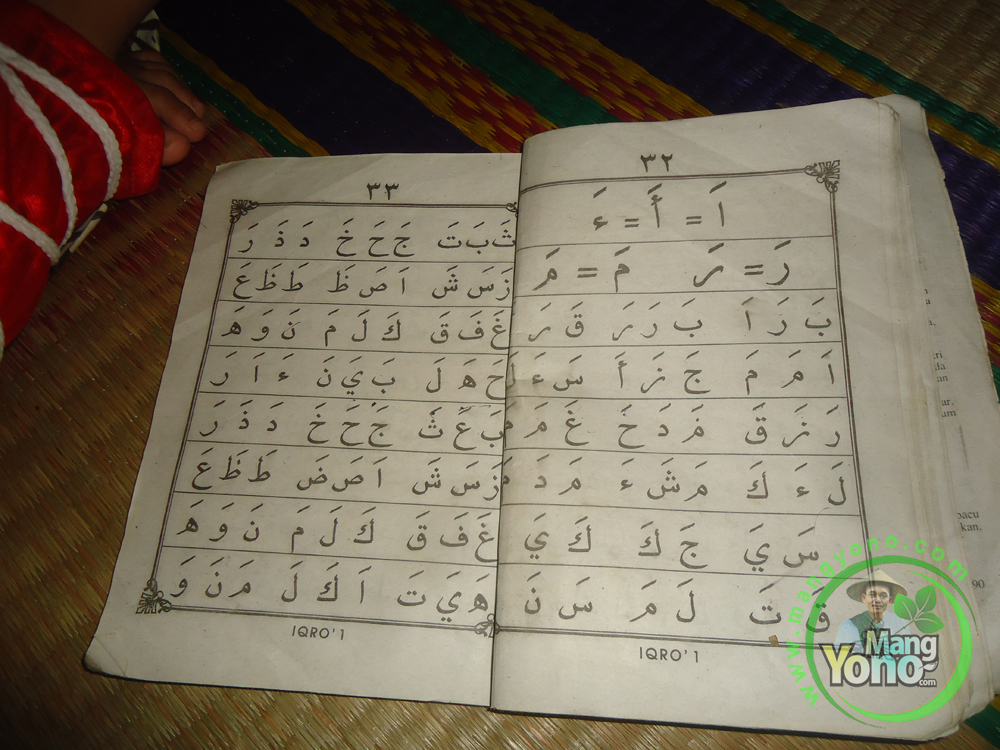 ٣٢
اَ = أَ = ءَ
رَ = رَ مَ = مَ
بَ رَ اَ بَ رَ رَ قَ رَ
اَ مَ مَ جَ زَ أَ سَ ءَ لَ
رَ زَ قَ مَ دَ حَ غَ مَ مَ
لَ ءَ كَ مَ شَ ءَ مَ دَ مَ
سَ يَ جَ كَ كَ يَ
قَ تَ لَ مَ سَ نَ
IQRO'1
٣٣
ثَ بَ تَ جَ حَ خَ دَ ذَ رَ
زَ سَ شَ اَ صَ ظَ طَ ظَ عَ
غَ فَ قَ كَ لَ مَ نَ وَ هَ
حَ هَ لَ بَ يَ نَ ءَ اَ رَ
بَ عَ ثَ جَ حَ خَ دَ ذَ رَ
زَ سَ شَ اَ صَ ضَ طَ ظَ عَ
غَ فَ قَ كَ لَ مَ نَ وَ هَ
هَ يَ تَ اَ كَ لَ مَ نَ وَ
IQRO'1
kan,
90
www.mangyono.com
Mang
Yono
.com